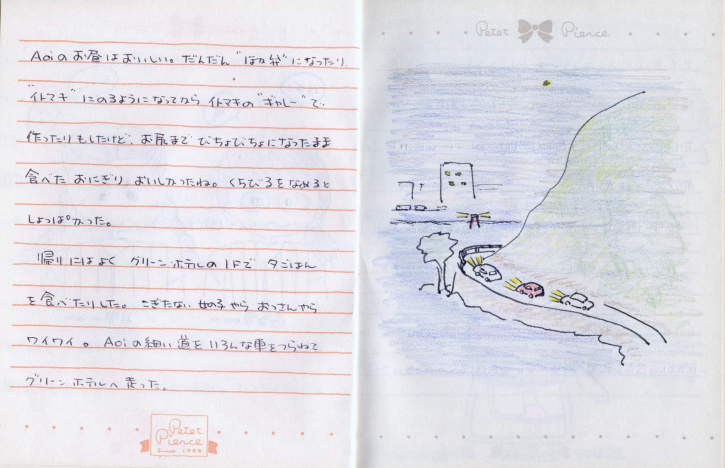 Aoiのお昼はおいしい。だんだん"ほか弁"になったり
"イトマキ"にのるようになってから イトマキの"ギャレー"で
作ったりもしたけど、お尻まで びちょびちょになったまま
食べた おにぎり おいしかったね。くちびるをなめると
しょっぱかった。
帰りにはよく グリーンホテルの1Fで 夕ごはん
を食べたりした。こぎたない 女の子やら おっさんやら
ワイワイ。Aoiの細い道を いろんな車をつらねて
グリーンホテルへ走った。
Petet
Pierce
Since 1988
Petet Pierce